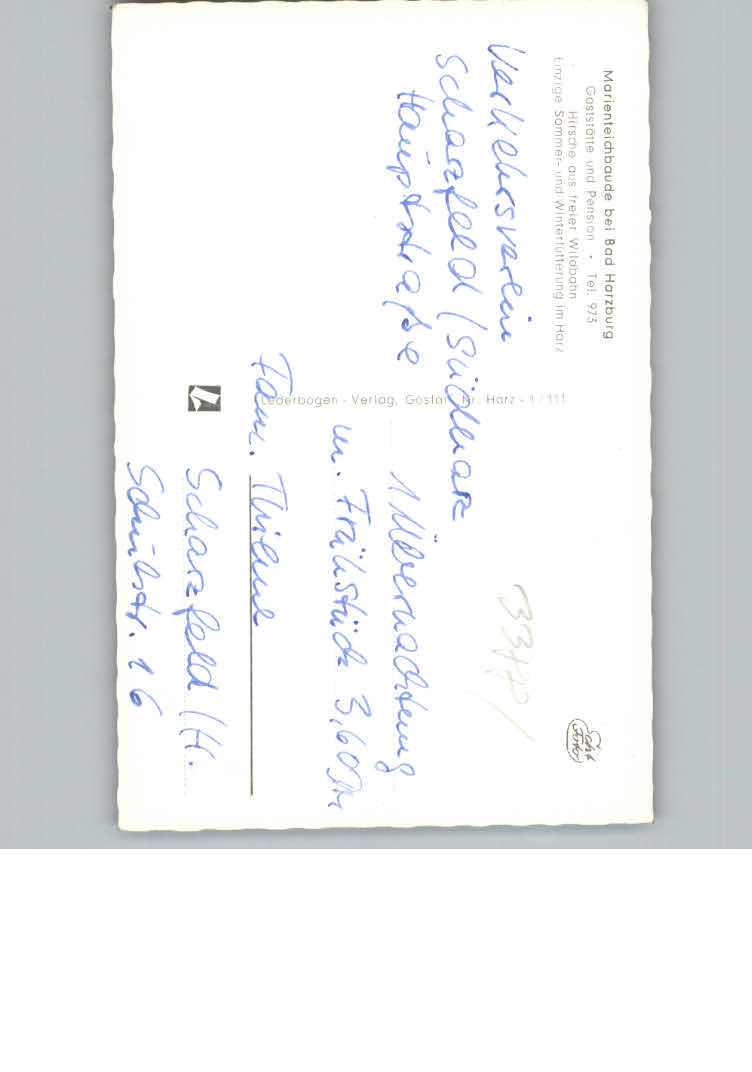 Marienteichbaude bei Bad Harzburg
Gaststätte und Pension • Tel. 973
Hirsche aus freier Wildbahn
Einzige Sommer- und Winterfütterung im Harz
Verkehrsverein
Scharzfeld / Südharz
Hauptstraße
Lederbogen - Verlag, Goslar, Nr. Harz - 1 / 111
1 Übernachtung
m. Frühstück 3,60 DM
Fam. Thieme
Scharzfeld / H.
Schulstr. 16
Echt
Foto